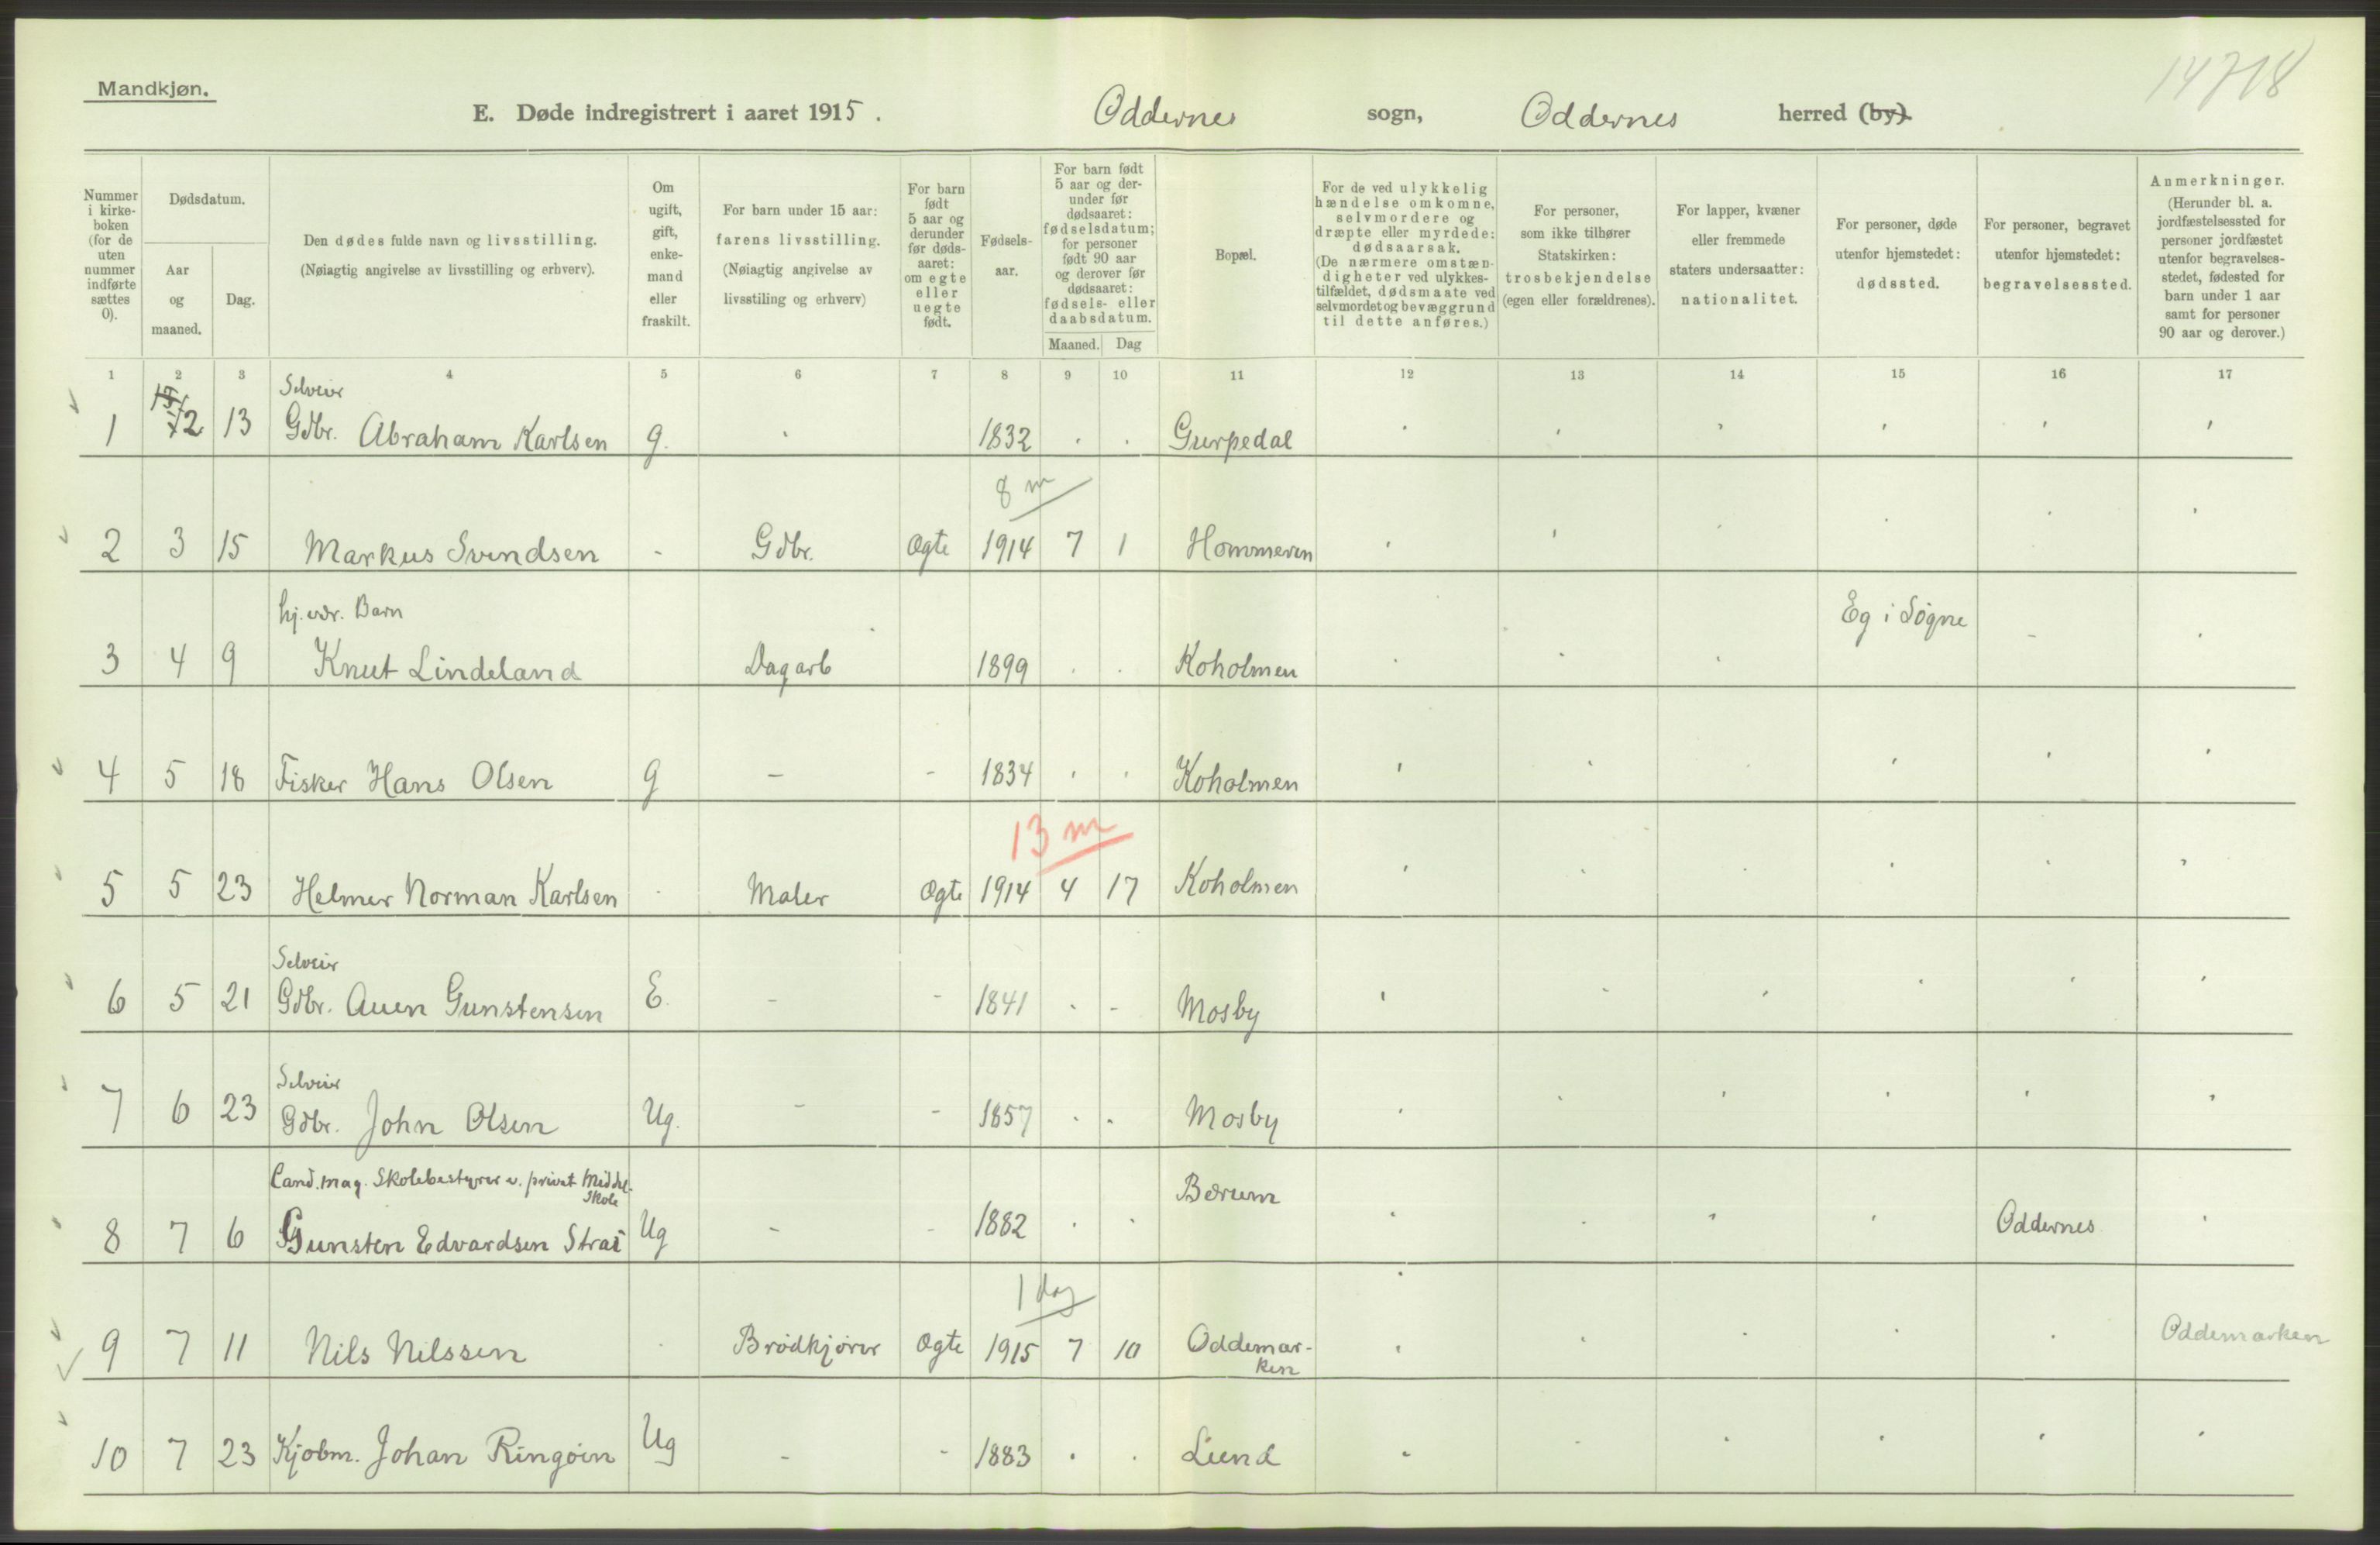 Mandkjøn.
14718
E. Døde indregistrert i aaret 1915. Oddernes sogn, Oddernes herred (by).
Nummer i kirke-boken (for de uten nummer indførte sættes 0).
Dødsdatum.
Aar og maaned.
Dag.
Den dødes fulde navn og livsstilling.
(Nøiagtig angivelse av livsstilling og erhverv).
Om ugift, gift, enke-mand eller fraskilt.
For barn under 15 aar: farens livsstilling.
(Nøiagtig angivelse av livsstiling og erhverv)
For barn født 5 aar og derunder før døds-aaret: om egte eller uegte født.
Fødsels-aar.
For barn født 5 aar og der-under før dødsaaret: fødselsdatum; for personer født 90 aar og derover før dødsaaret: fødsels- eller daabsdatum.
Maaned. Dag
Bopæl.
For de ved ulykkelig hændelse omkomne, selvmordere og dræpte eller myrdede: dødsaarsak.
(De nærmere omstæn-digheter ved ulykkes-tilfældet, dødsmaate ved selvmordet og bevæggrund til dette anføres.)
For personer, som ikke tilhører Statskirken: trosbekjendelse (egen eller forældrenes).
For lapper, kvæner eller fremmede staters undersaatter: nationalitet.
For personer, døde utenfor hjemstedet: dødssted.
For personer, begravet utenfor hjemstedet: begravelsessted.
Anmerkninger.
(Herunder bl. a. jordfæstelsessted for personer jordfæstet utenfor begravelses-stedet, fødested for barn under 1 aar samt for personer 90 aar og derover.)
1 2 3 4 5 6 7 8 9 10 11 12 13 14 15 16 17
Selveier
1 2 13 Gdbr. Abraham Karlsen g. 1832 Gurpedal
8 m
2 3 15 Markus Svendsen - Gdbr. Ogte 1914 7 1 Hommeren
hj. vær. Barn
Eg i Søgne
3 4 9 Knut Lindeland Dagarb 1899 Koholmen -
4 5 18 Fisker Hans Olsen g - - 1834 Koholmen
13 m
5 5 23 Helmer Norman Karlsen Maler Ogte 1914 4 17 Koholmen
Selveier
6 5 21 Gdbr. Auen Gunstensen E. - - 1841 - Mosby
Selveier
7 6 23 Gdbr. John Olsen Ug. - - 1857 Mosby
Cand. mag. Skolebestyrer v. privat Middel-
skole
8 7 6 Gunsten Edvardsen Strai Ug - - 1882 Bærum Oddernes
1 dag
9 7 11 Nils Nilssen Brødkjører Ogte 1915 7 10 Oddemar- Oddemarken
ken
10 7 23 Kjøbm. Johan Ringøin Ug - - 1883 Lund